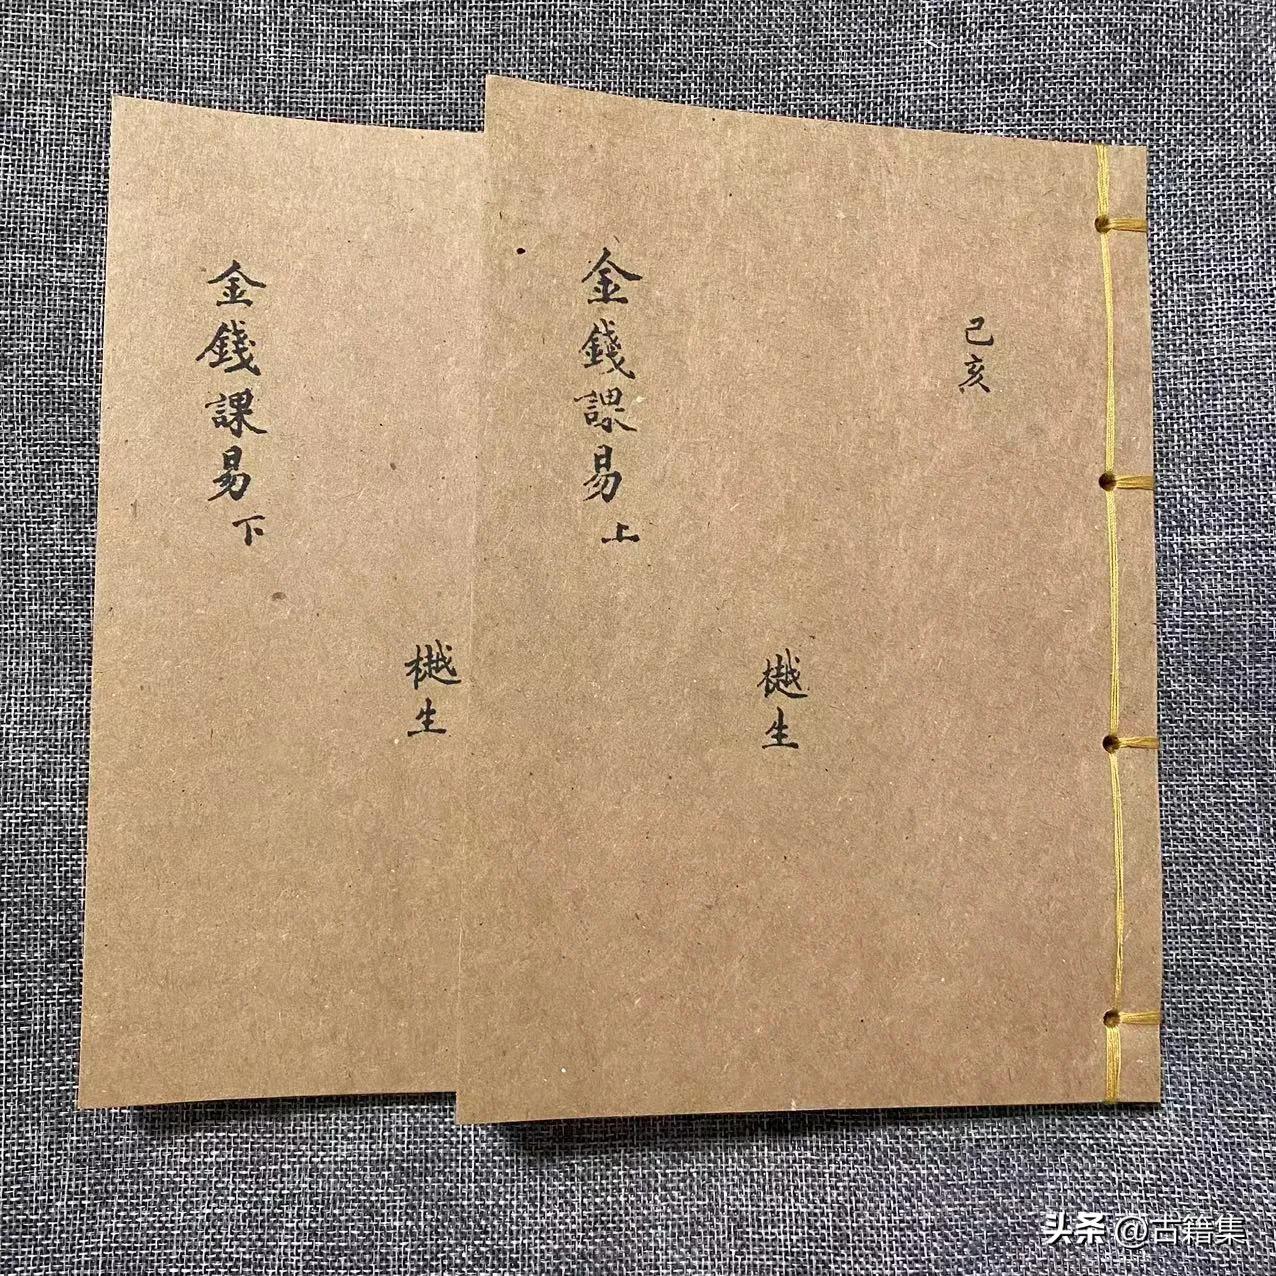 己亥
金錢課易 上
樾生
金錢課易 下
樾生
头条 @古籍集